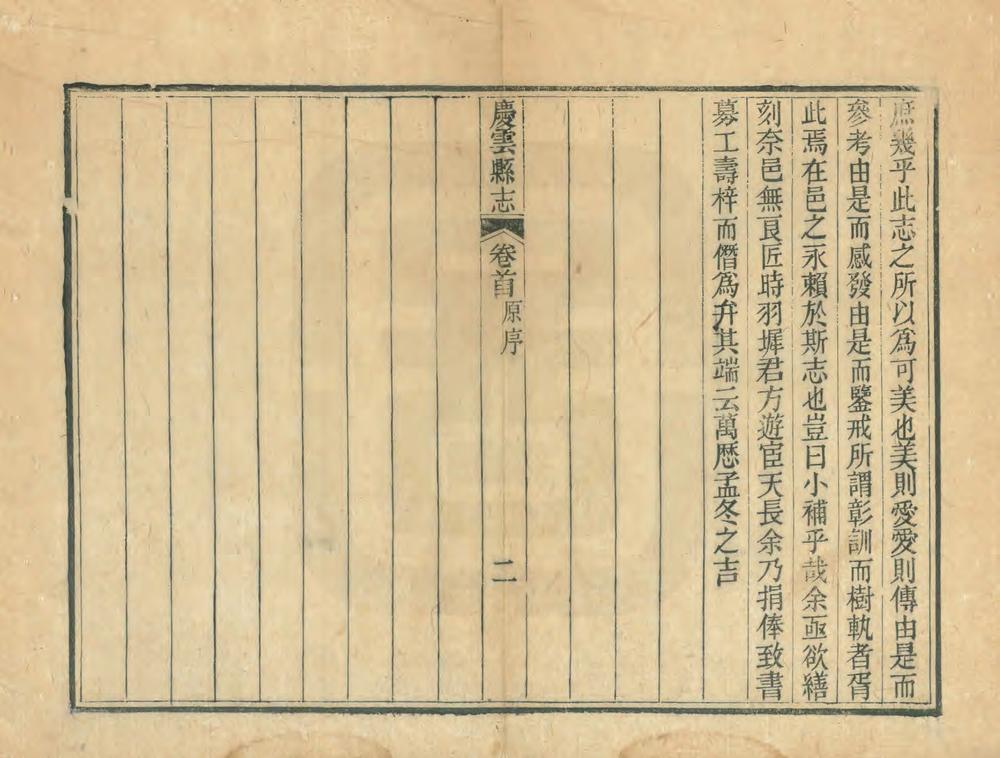 庶幾乎此志之所以爲可美也美則愛愛則傳由是而
參考由是而感發由是而鑒戒所謂彰訓而樹執者胥
此焉在邑之永賴於斯志也豈曰小補乎哉余亟欲繕
刻奈邑無良匠時羽墀君方遊宦天長余乃捐俸致書
募工壽梓而僭爲弁其端云萬厯孟冬之吉
慶雲縣志
卷首
原序
二